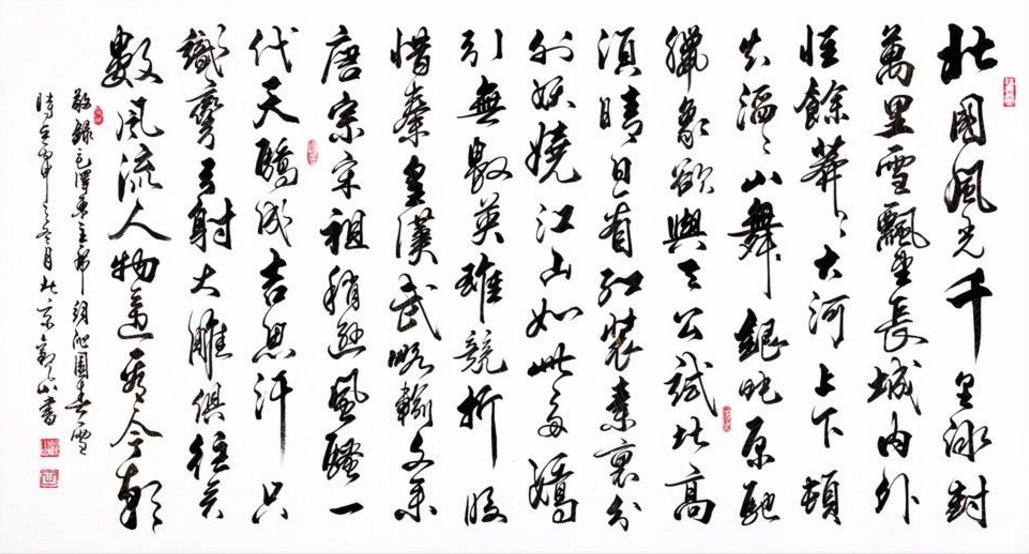 北國風光千里冰封
萬里雪飄望長城內外
惟餘莽々大河上下頓
失滔々山舞銀蛇原馳
臘象欲與天公試比高
須晴日看紅裝素裹分
外妖嬈江山如此多嬌
引無數英雄競折腰
惜秦皇漢武略輸文采
唐宗宋祖稍遜風騷一
代天驕成吉思汗只
識彎弓射大雕俱往矣
數風流人物還看今朝
敬錄毛澤東主席詞沁園春雪
時申之冬月北京山書